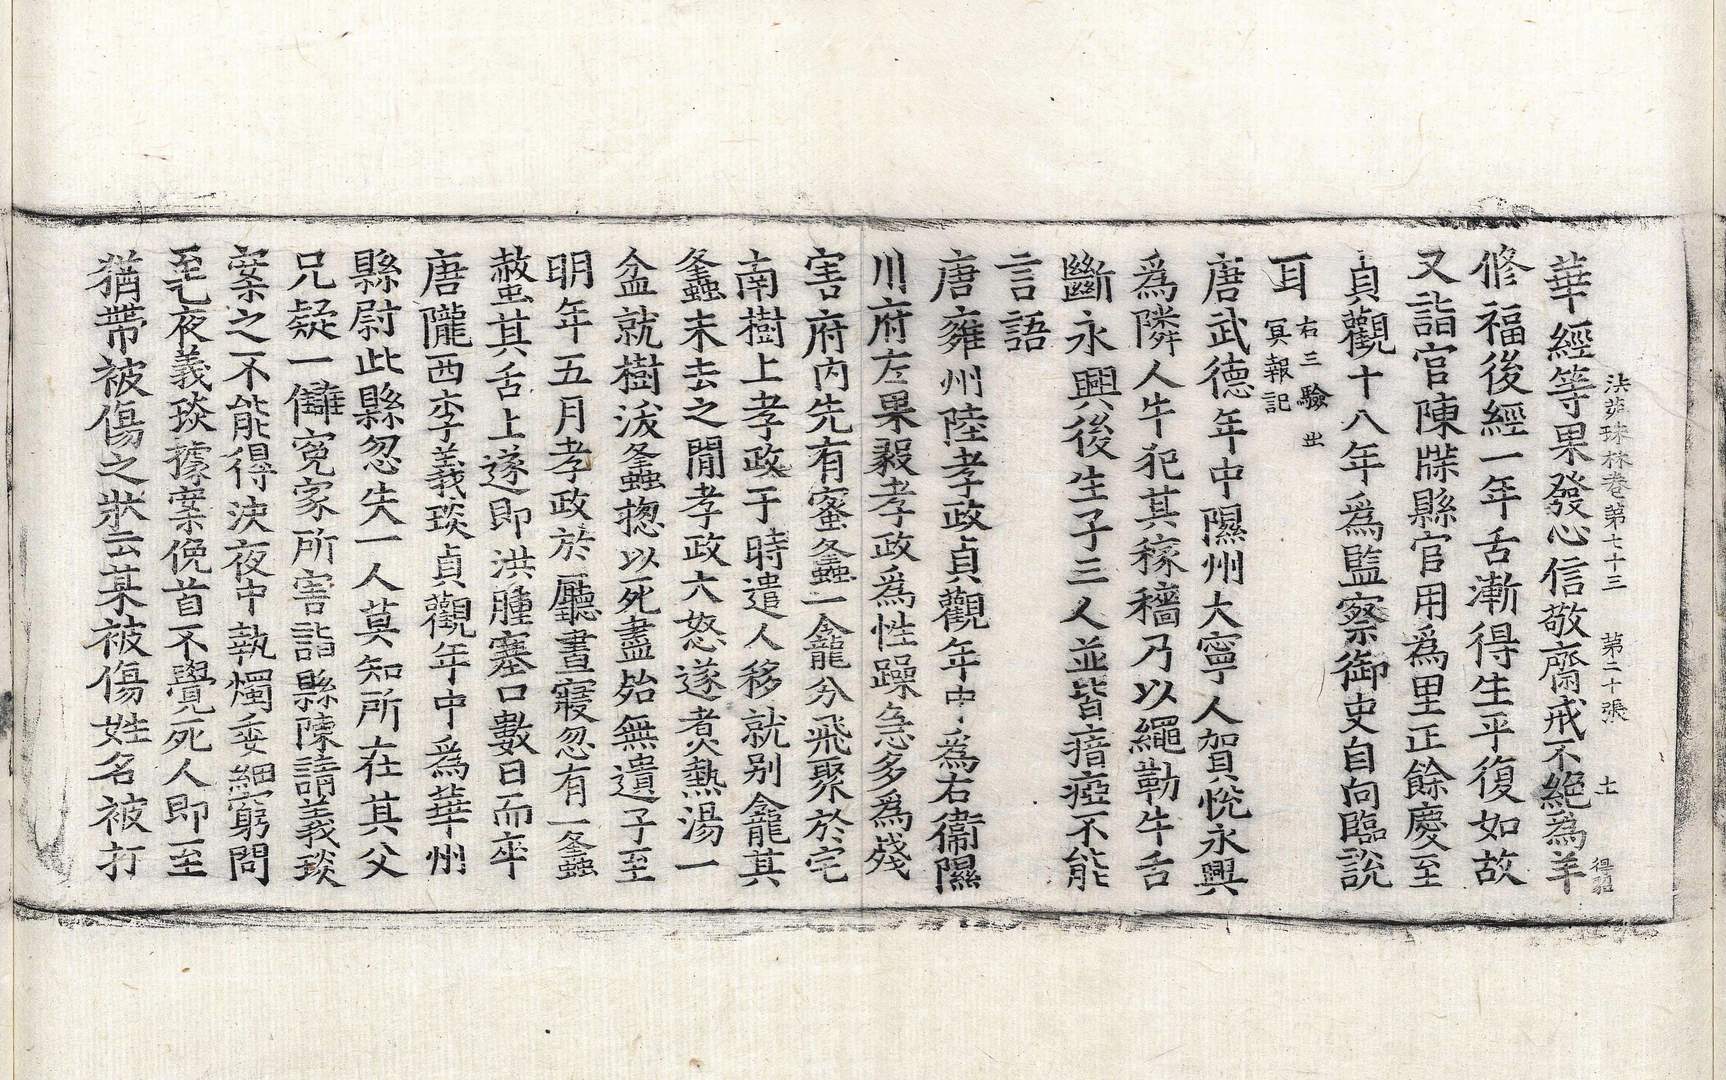 法苑珠林卷第七十三　第二十張　土
華經等果發心信敬齋戒不絕為羊
修福後經一年舌漸得生平復如故
又詣官陳牒縣官用為里正餘慶至
貞觀十八年為監察御史自向臨說
耳右三驗出冥報記
唐武德年中隰州大寧人賀悅永興
為隣人牛犯其稼穡乃以繩勒牛舌
斷永興後生子三人並皆瘖瘂不能
言語
唐雍州陸孝政貞觀年中為右衞隰
川府左果毅孝政為性躁急多為殘
害府內先有蜜蠭一龕分飛聚於宅
南樹上孝政于時遣人移就別龕其
蠭未去之閒孝政大怒遂煮熱湯一
盆就樹沃蠭揔以死盡殆無遺子至
明年五月孝政於廳晝寢忽有一蠭
螫其舌上遂即洪腫塞口數日而卒
唐隴西李義琰貞觀年中為華州
縣尉此縣忽失一人莫知所在其父
兄疑一讎寃家所害詣縣陳請義琰
案之不能得決夜中執燭委細窮問
至乙夜義琰據案俛首不覺死人即至
猶帶被傷之狀云某被傷姓名被打